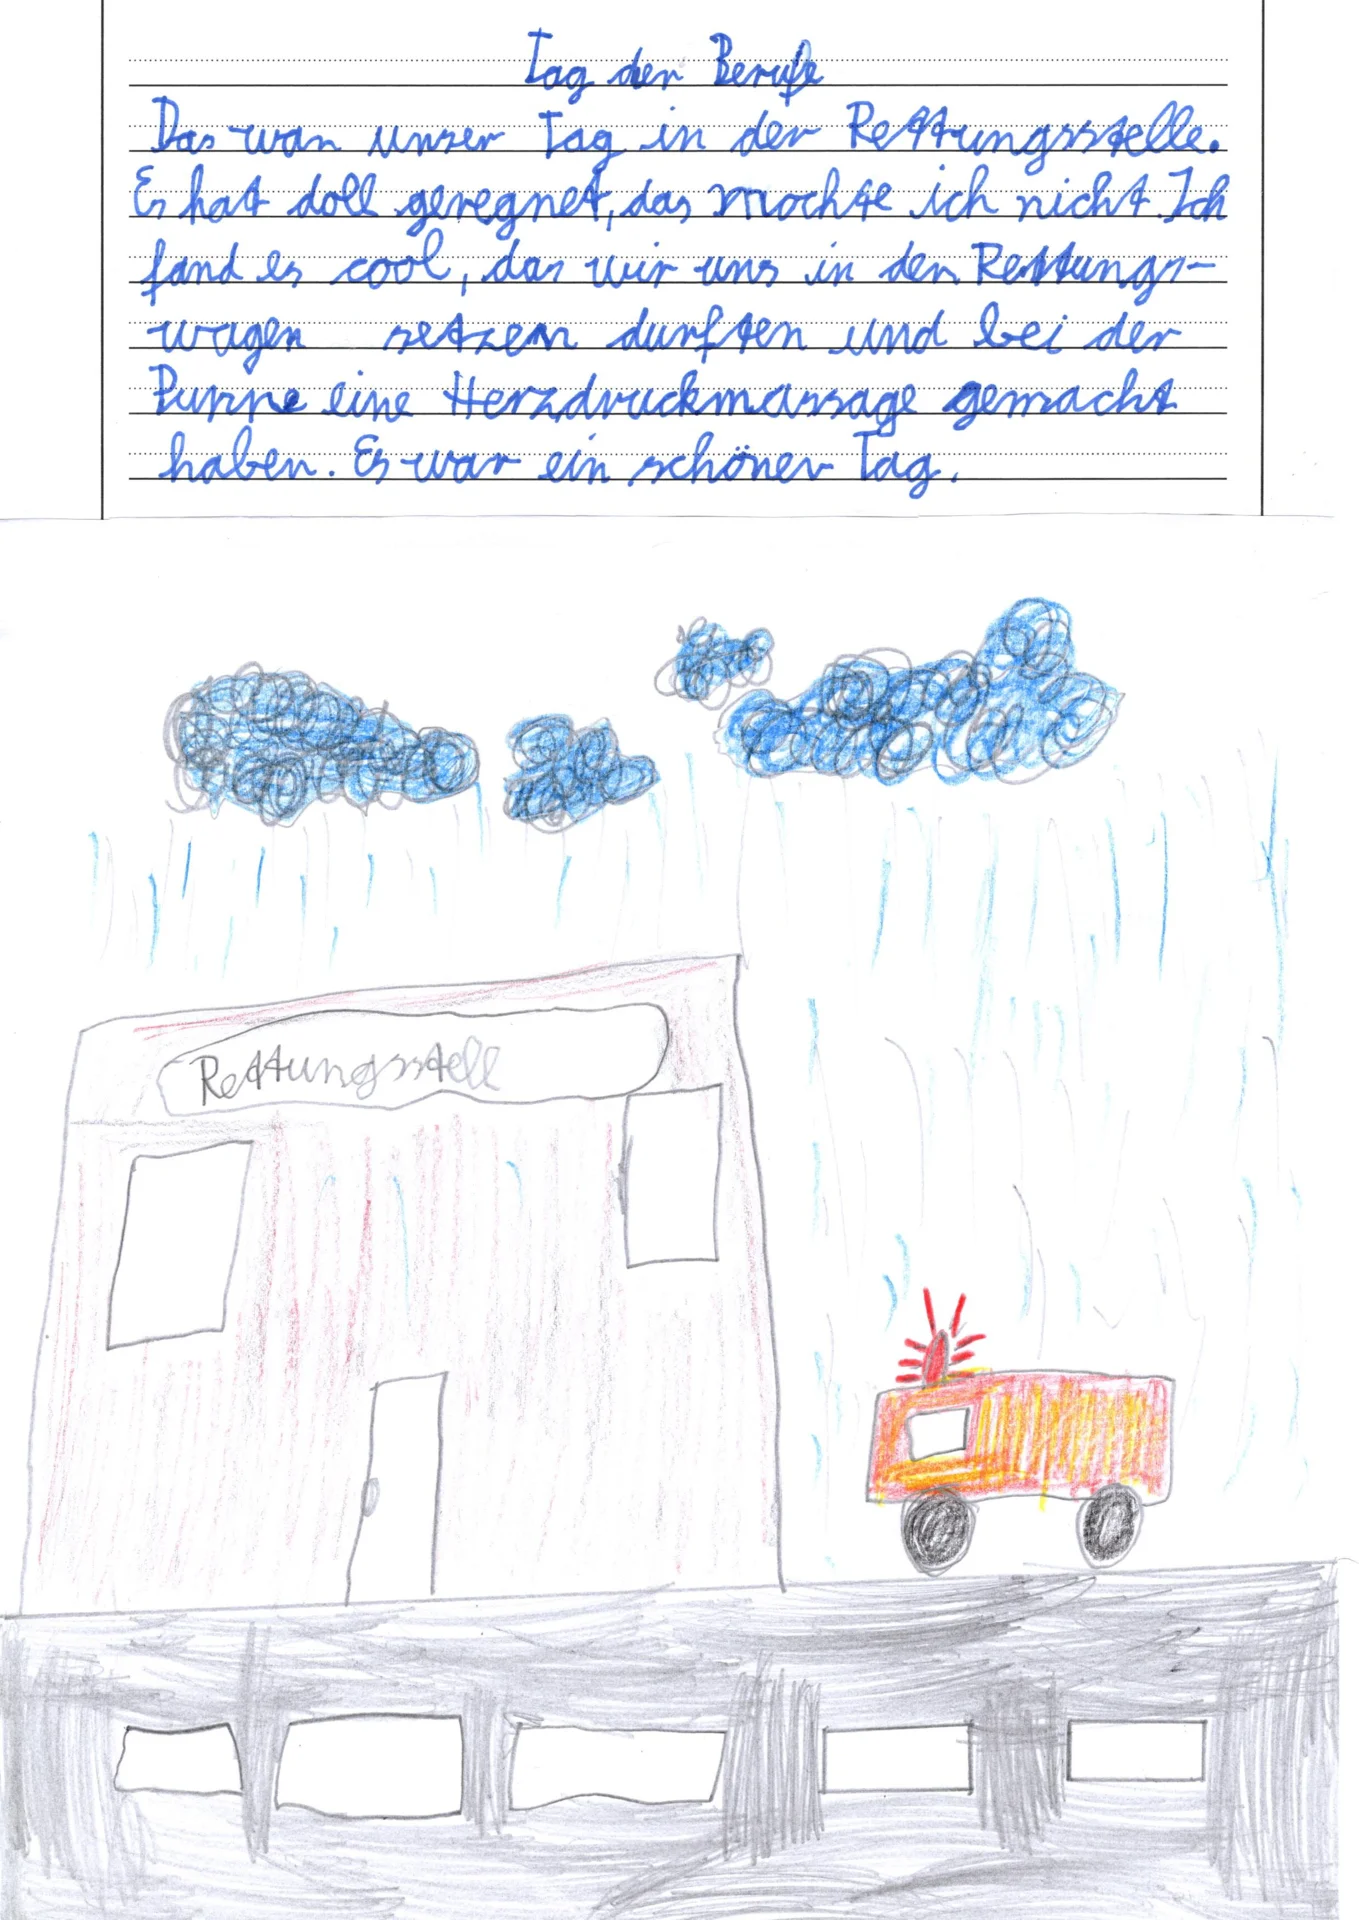 Tag der Berufe
Das war unser Tag in der Rettungsstelle.
Es hat doll geregnet, das mochte ich nicht. Ich
fand es cool, das wir uns in den Rettungs-
wagen setzen durften und bei der
Puppe eine Herzdruckmassage gemacht
haben. Es war ein schöner Tag.
Rettungsstell